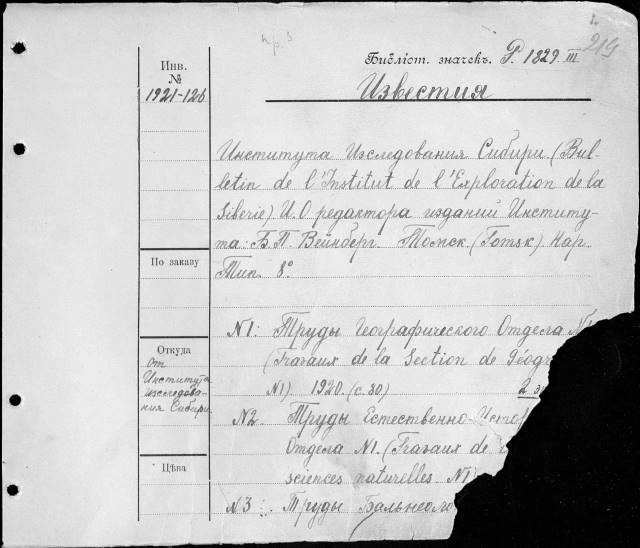 219
Инв.
№
1921-126
Библіот. значекъ. P. 1829. III
Известия
Института Изследования Сибири. (Bul-
letin de l'Institut de l'Exploration de la
Siberie). И.О. редактора изданий Институ-
та: Б.П. Вейнберг. Томск. (Tomsk). Нар.
Тип. 8°.
По заказу
N1: Труды Географического Отдела N1
(Travaux de la Section de Géogr
N1) 1920. (с. 80)
Откуда
От
Института
изследова-
ния Сибири.
N2. Труды Естественно-Истор
Отдела N1. (Travaux de
sciences naturelles N1)
Цѣна
N3 : Труды Бальнеоло